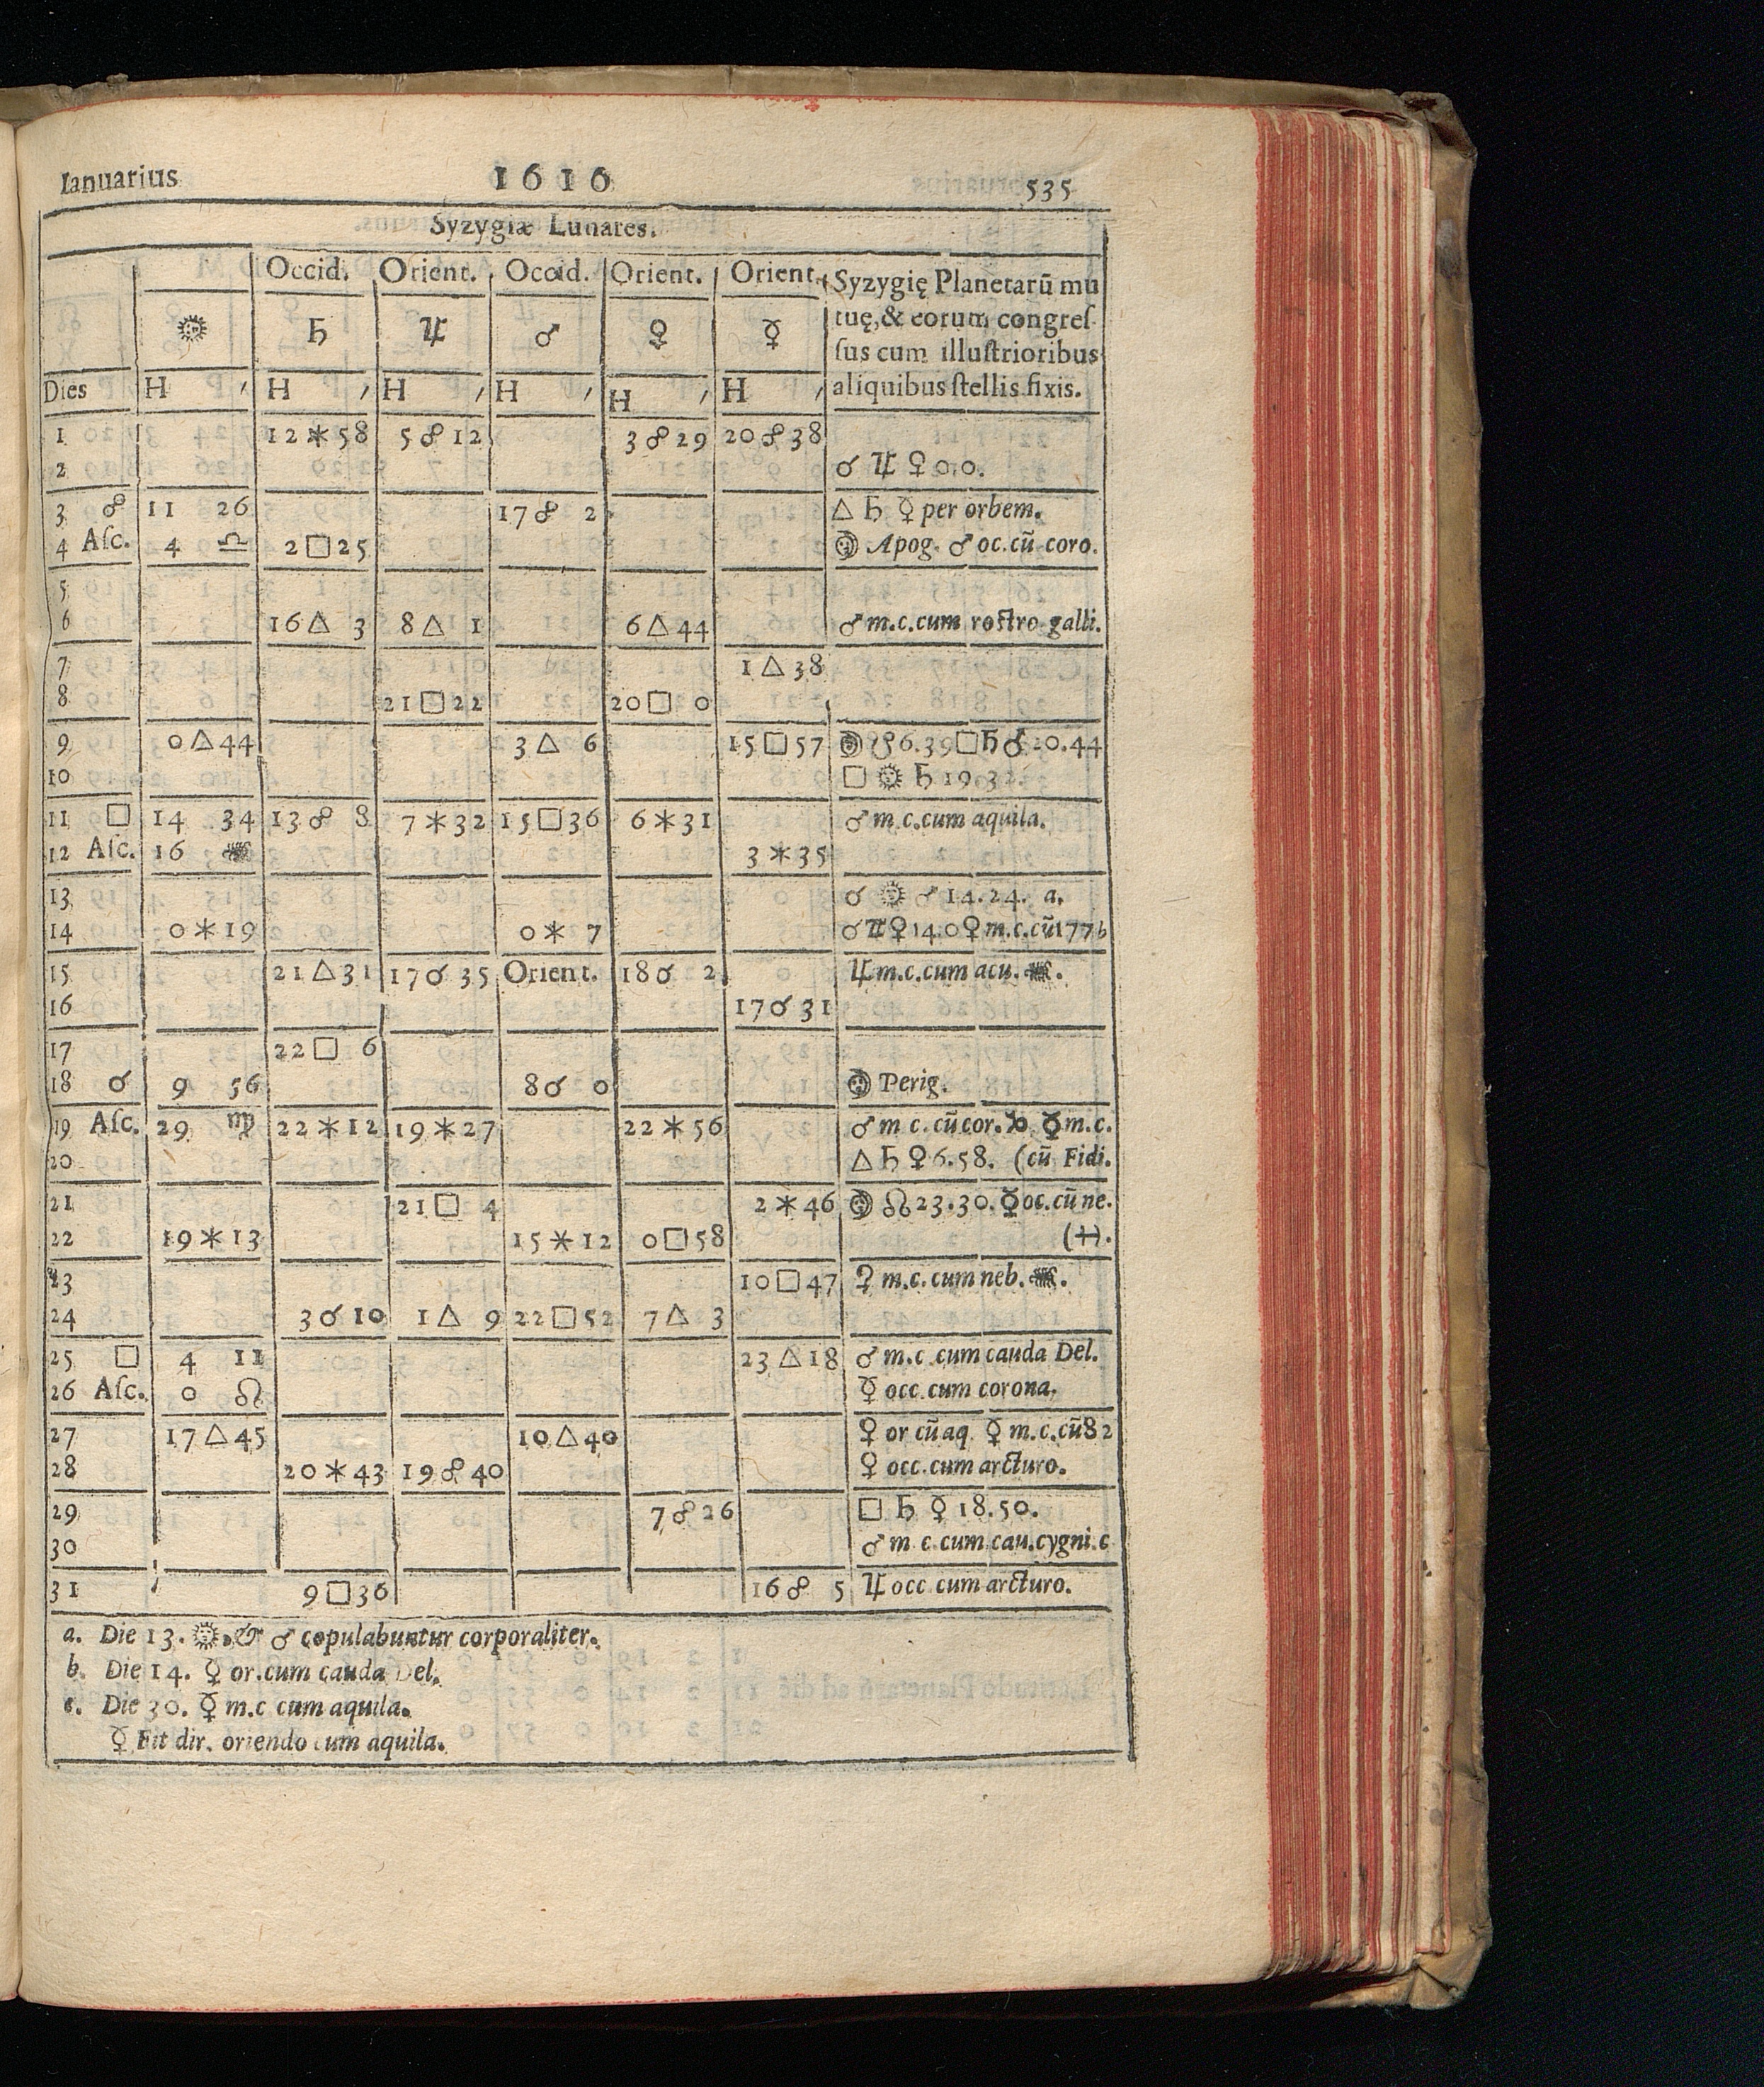 Ianuarius 1610 535
Syzygiæ Lunares.
Occid. Orient. Occid. Orient. Orient. Syzygię Planetarū mu
tuę, & eorum congreſ
☉ ♄ ♃ ♂ ♀ ☿ ſus cum illuſtrioribus
Dies H ′ H ′ H ′ H ′ H ′ H ′ aliquibus ſtellis fixis.
1 12 ⚹ 58 5 ☍ 12 3 ☍ 29 20 ☍ 38
2 ☌ ♃ ♀ 0.0.
3 ☍ 11 26 17 ☍ 2 △ ♄ ☿ per orbem.
4 Aſc. 4 ♎ 2 □ 25 ☽ Apog. ♂ oc. cū coro.
5
6 16 △ 3 8 △ 1 6 △ 44 ♂ m.c. cum roſtro galli.
7 1 △ 38
8 21 □ 22 20 □ 0
9 0 △ 44 3 △ 6 15 □ 57 ☽ ☋ 6.39 □ ♄ ♂ 20.44
10 □ ☉ ♄ 19.32.
11 □ 14 34 13 ☍ 8 7 ⚹ 32 15 □ 36 6 ⚹ 31 ♂ m.c. cum aquila.
12 Aſc. 16 3 ⚹ 35
13 ☌ ☉ ♂ 14.24. a.
14 0 ⚹ 19 0 ⚹ 7 ☌ ♃ ♀ 14.0 ♀ m.c. cū 177 b
15 21 △ 31 17 ☌ 35 Orient. 18 ☌ 2 ♃ m.c. cum acu.
16 17 ☌ 31
17 22 □ 6
18 ☌ 9 56 8 ☌ 0 ☽ Perig.
19 Aſc. 29 ♍ 22 ⚹ 12 19 ⚹ 27 22 ⚹ 56 ♂ m c. cū cor. ☿ m.c.
20 △ ♄ ♀ 6.58. (cū Fidi.
21 21 □ 4 2 ⚹ 46 ☽ ☊ 23.30. ☿ oc. cū ne.
22 19 ⚹ 13 15 ⚹ 12 0 □ 58 (♐.
23 10 □ 47 ♀ m.c. cum neb.
24 3 ☌ 10 1 △ 9 22 □ 52 7 △ 3
25 □ 4 11 23 △ 18 ♂ m.c. cum cauda Del.
26 Aſc. 0 ♌ ☿ occ. cum corona.
27 17 △ 45 10 △ 40 ♀ or cū aq. ☿ m.c. cū 82
28 20 ⚹ 43 19 ☍ 40 ♀ occ. cum arcturo.
29 7 ☍ 26 □ ♄ ☿ 18.50.
30 ♂ m c. cum cau. cygni. c
31 9 □ 36 16 ☍ 5 ♃ occ. cum arcturo.
a. Die 13. ☉, & ♂ copulabuntur corporaliter.
b. Die 14. ☿ or. cum cauda Del.
c. Die 30. ☿ m.c cum aquila.
☿ Fit dir. oriendo cum aquila.